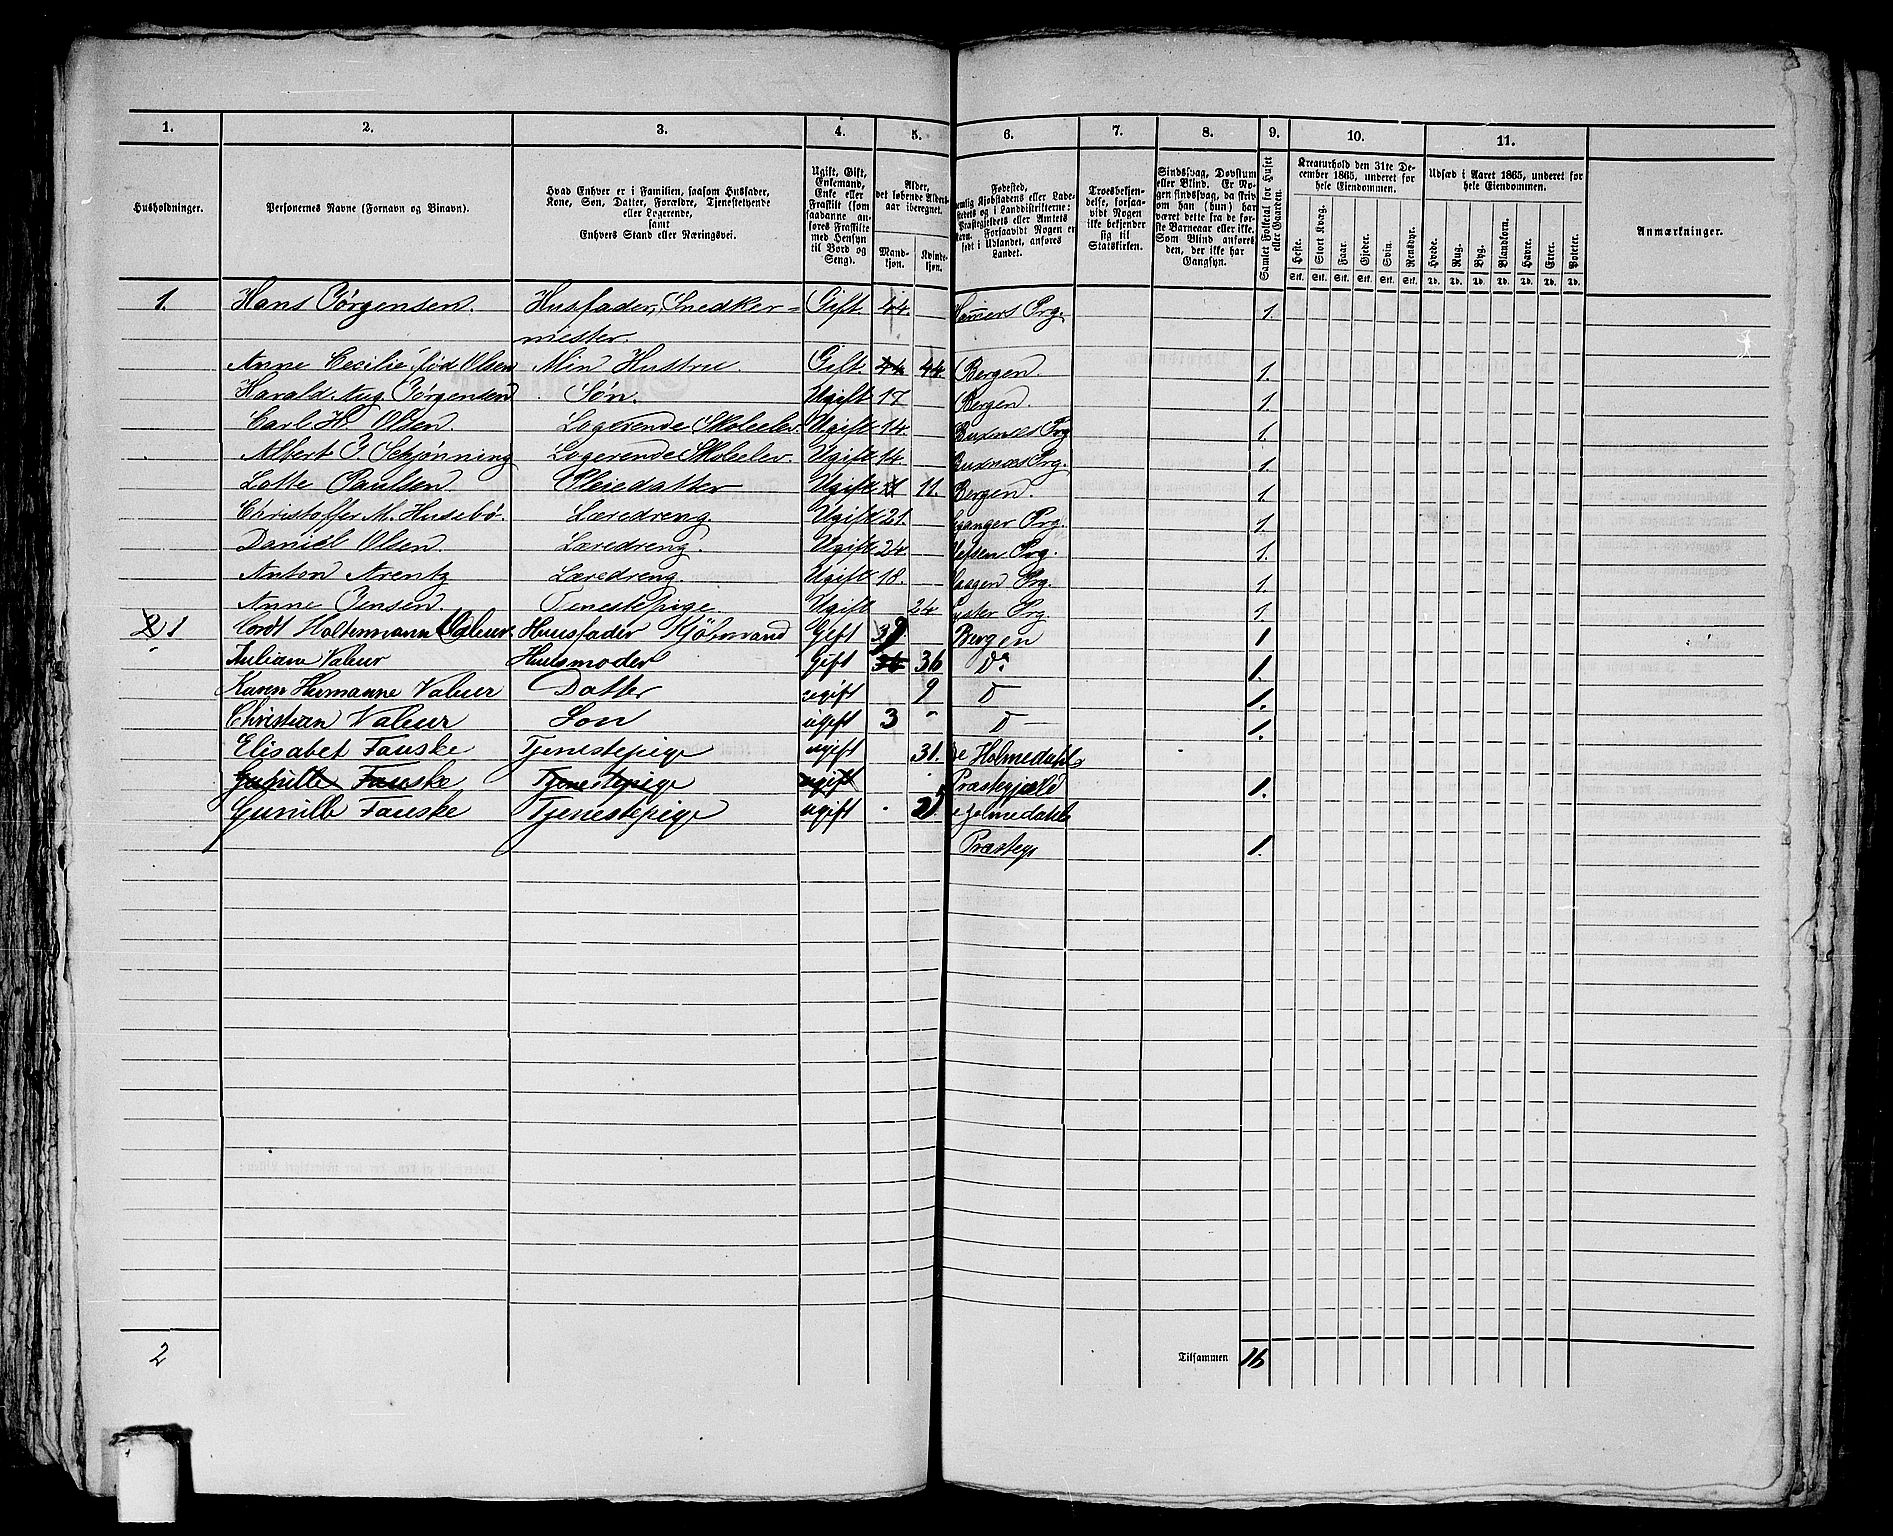 1. 2. 3. 4. 5. 6. 7. 8. 9. 10. 11.
Husholdninger.
Personernes Navne (Fornavn og Binavn).
Hvad Enhver er i Familien, saasom Husfader,
Kone, Søn, Datter, Forældre, Tjenestetyende
eller Logerende,
samt
Enhvers Stand eller Næringsvei.
Ugift, Gift,
Enkemand,
Enke eller
Fraskilt (som
saadanne an-
føres Fraskilte
med Hensyn
til Bord og
Seng).
Alder,
det løbende Alders-
aar iberegnet.
Mand-
kjøn.
Kvinde-
kjøn.
Fødested,
Landet.
Troesbekjen-
delse, forsaa-
vidt Nogen
ikke bekjender
sig til
Statskirken.
Sindssvag, Døvstum
eller Blind. Er No-
gen sindssvag, da skriv
om han (hun) har
været dette fra de før-
ste Barneaar eller ikke.
Som Blind anføres
den, der ikke har
Gangsyn.
Samlet Folketal for Huset
eller Gaarden.
Kreaturhold den 31te De-
cember 1865, underet for
hele Eiendommen.
Heste. Stort Kvæg. Faar. Gjeder. Svin. Rensdyr.
Stk. Stk. Stk. Stk. Stk. Stk.
Udsæd i Aaret 1865, underet for
hele Eiendommen.
Hvede. Rug. Byg. Blandkorn. Havre. Erter. Poteter.
Td. Td. Td. Td. Td. Td. Td.
Anmærkninger.
1. Hans Jörgensen. Husfader, Snedker= Gift. 44. Hamers Prg. 1.
mester.
Anne Cecilie född Olsen Min Hustru Gift. 44 44. Bergen. 1.
Harald Aug. Jörgensen Sön. Ugift 17 Bergen. 1.
Carl H. Olsen. Logerende Skoleelev. Ugift 14. Buxnæs Prg 1.
Albert J Schjønning Logerende Skoleelev. Ugift 14. Buxnæs Prg. 1.
Lotte Paulsen. Pleiedatter Ugift 11 11. Bergen. 1.
Christoffer M. Husebö. Læredreng. Ugift 21. ganger Prg. 1.
Daniel Olsen. Læredreng. Ugift 24. Vefsen Prg. 1.
Anton Arentz Læredreng. Ugift 18. Prg. 1.
Anne Jensen. Tenestepige Ugift 24 yster Prg 1.
2 1 Cordt Holtermann Valeur. Huusfader Kjöbmand Gift 39 Bergen 1
Juliane Valeur Huusmoder Gift 36 36 Do 1.
Karen Hermanne Valeur Datter ugift 9 D 1.
Christian Valeur Son ugift 3 - D 1.
Elisabet Fauske Tjenestepige ugift 31. Holmedahls
Gunille Fauske Tjenestepige ugift Præstegjæld 1.
Gunille Fauske Tjenestepige ugift . 25
Præsteg 1.
2 Tilsammen 16